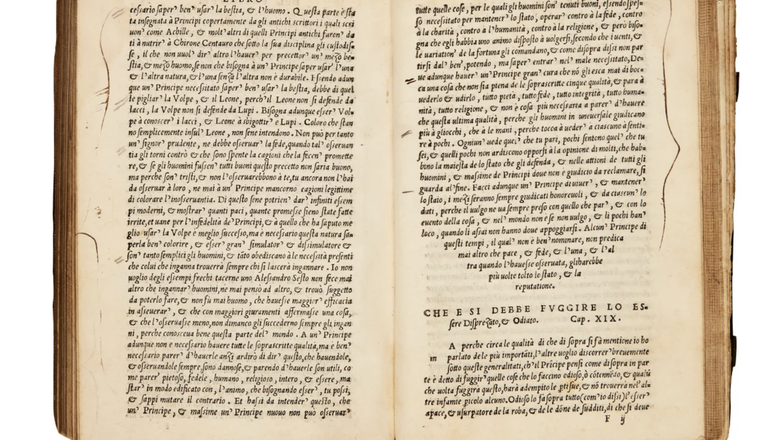 LIBRO
cessario saper ben' usar la bestia, & l'huomo. Questa parte è sta
ta insegnata à Principi copertamente da gli antichi scrittori i quali scri
uon' come Achille, & molt' altri di quelli Principi antichi furon' da
ti à nutrir' à Chirone Centauro che sotto la sua disciplina gli custodis-
se, il che non vuol dir' altro l'hauer' per precettor' un mezo be-
stia, & mezo huomo, se non che bisogna à un' Principe saper usar' l'una
& l'altra natura, & l'una senza l'altra non è durabile. Essendo adun
que un' Principe necessitato saper ben' usar la bestia, debbe di quel
le pigliar la Volpe, & il Leone, perch' il Leone non si defende da
lacci, la Volpe non si defende da Lupi. Bisogna adunque esser Vol
pe à conoscer' i lacci, & Leone à sbigottir' e Lupi. Coloro che stan
no semplicemente insul Leone, non sene intendono. Non può per tanto
un' signor' prudente, ne debbe osseruar la fede, quando tal' osseruan
tia gli torni contro & che sono spente la cagioni che la fecen' promette
re, & se gli huomini fussen' tutti buoni questo precetto non saria buono,
ma perche son' tristi, & non l'osseruarebbono à te, tu ancora non l'hai
da osseruar à loro, ne mai à un' Principe mancorno cagioni legittime
di colorare l'inosseruantia. Di questo sene potrien' dar' infiniti essem
pi moderni, & mostrar' quanti paci, quante promesse sieno state fatte
irrite, et uane per l'infidelita de Principi, & à quello che ha saputo me
glio usar' la Volpe è meglio successo, ma è necessario questa natura sa-
perla ben' colorire, & esser' gran' simulator' & dissimulatore &
son' tanto semplici gli huomini, & tāto obediscano à le necessità presenti
che colui che inganna trouerrà sempre chi si lascerà ingannare. Io non
uoglio de gli essempi freschi tacerne uno Alessandro Sesto non fece mai
altro che ingannar' huomini, ne mai pensò ad altro, & trouò suggetto
da poterlo fare, & non fù mai huomo, che hauesse maggior' efficacia
in asseuerar', & che con maggiori giuramenti affermasse una cosa,
& che l'osseruasse meno, non dimanco gli succederno sempre gli ingan
ni, perche conosceua bene questa parte del mondo. A un' Principe
adunque non è necessario hauer tutte le soprascritte qualità, ma è ben'
necessario parer' d'hauerle anzi ardirò di dir' questo, che hauendole,
& osseruandole sempre, sono dannose, & parendo d'hauerle son' utili, co
me parer' pietoso, fedele, humano, religioso, intero, & essere, ma
star' in modo edificato con l'animo, che bisognando esser', tu possi,
& sappi mutare il contrario. Et hassi da intender' questo, che
un' Principe, & massime un' Principe nuouo non può osseruar'
tutte quelle cose, per le quali gli huomini son' tenuti buoni, essendo spes-
so necessitato per mantener' lo stato, operar' contro à la fede, contro
à la charità, contro à l'humanità, contro à la religione, & però biso-
gna che egli habbia uno animo disposto à uolgersi, secondo che i uenti, &
le uariationi de la fortuna gli comandano, & come disopra dissi non par
tirsi dal ben', potendo, ma saper' entrar' nel male, necessitato. De-
ue adunque hauer' un Principe gran' cura che nō gli esca mai di boc-
ca una cosa che non sia piena de le soprascritte cinque qualità, & para à
uederlo & udirlo, tutto pietà, tutto fede, tutto integrità, tutto huma-
nità, tutto religione, & non è cosa più necessaria a parer' d'hauere
che questa ultima qualità, perche gli huomini in uneuersale giudicano
più à gliocchi, che à le mani, perche tocca à ueder' a ciascuno à senti-
re à pochi. Ognun' uede quel' che tu pari, pochi sentono quel' che tu
sei, & quelli pochi non ardiscono opporsi à la opinione di molti, che hab-
bino la maiesta de lo stato che gli defenda, & nelle attioni de tutti gli
huomini, & massime de Principi doue non è giudicio da reclamare, si
guarda al fine. Facci adunque un' Principe di uiuer', & mantener'
lo stato, i mezi saranno sempre giudicati honoreuoli, & da ciascun' lo
dati, perche il uulgo ne ua sempre preso con quello che par', & con lo
euento della cosa, & nel mondo non è se non uulgo, & li pochi han'
loco, quando li assai non hanno doue appoggiarsi. Alcun' Principe di
questi tempi, il qual non è ben' nominare, non predica
mai altro che pace, & fede, & l'una, & l'al
tra quando l'hauesse osseruata, gliharebbe
più uolte tolto lo stato, & la
reputatione.
CHE E SI DEBBE FVGGIRE LO ES-
sere Disprezato, & Odiato. Cap. XIX.
A perche circa le qualità di che di sopra si fà mentione io ho
m parlato de le più importāti, l'altre uoglio discorrer' breuemente
sotto queste generalità, ch'il Prīcipe pensi come disopra in par
te è detto di fuggir' quelle cose che lo faccino odioso, ò cōtemnēdo, & qualū
che uolta fuggirà questo, harà adempito le parti sue, & nō trouerrà nel' al
tre infamie periculo alcuno. Odioso lo fa sopra tutto (com'io dissi) l'esser'
rapace, & usurpatore de la roba, & de le dōne de sudditi, di che si deue
F ij